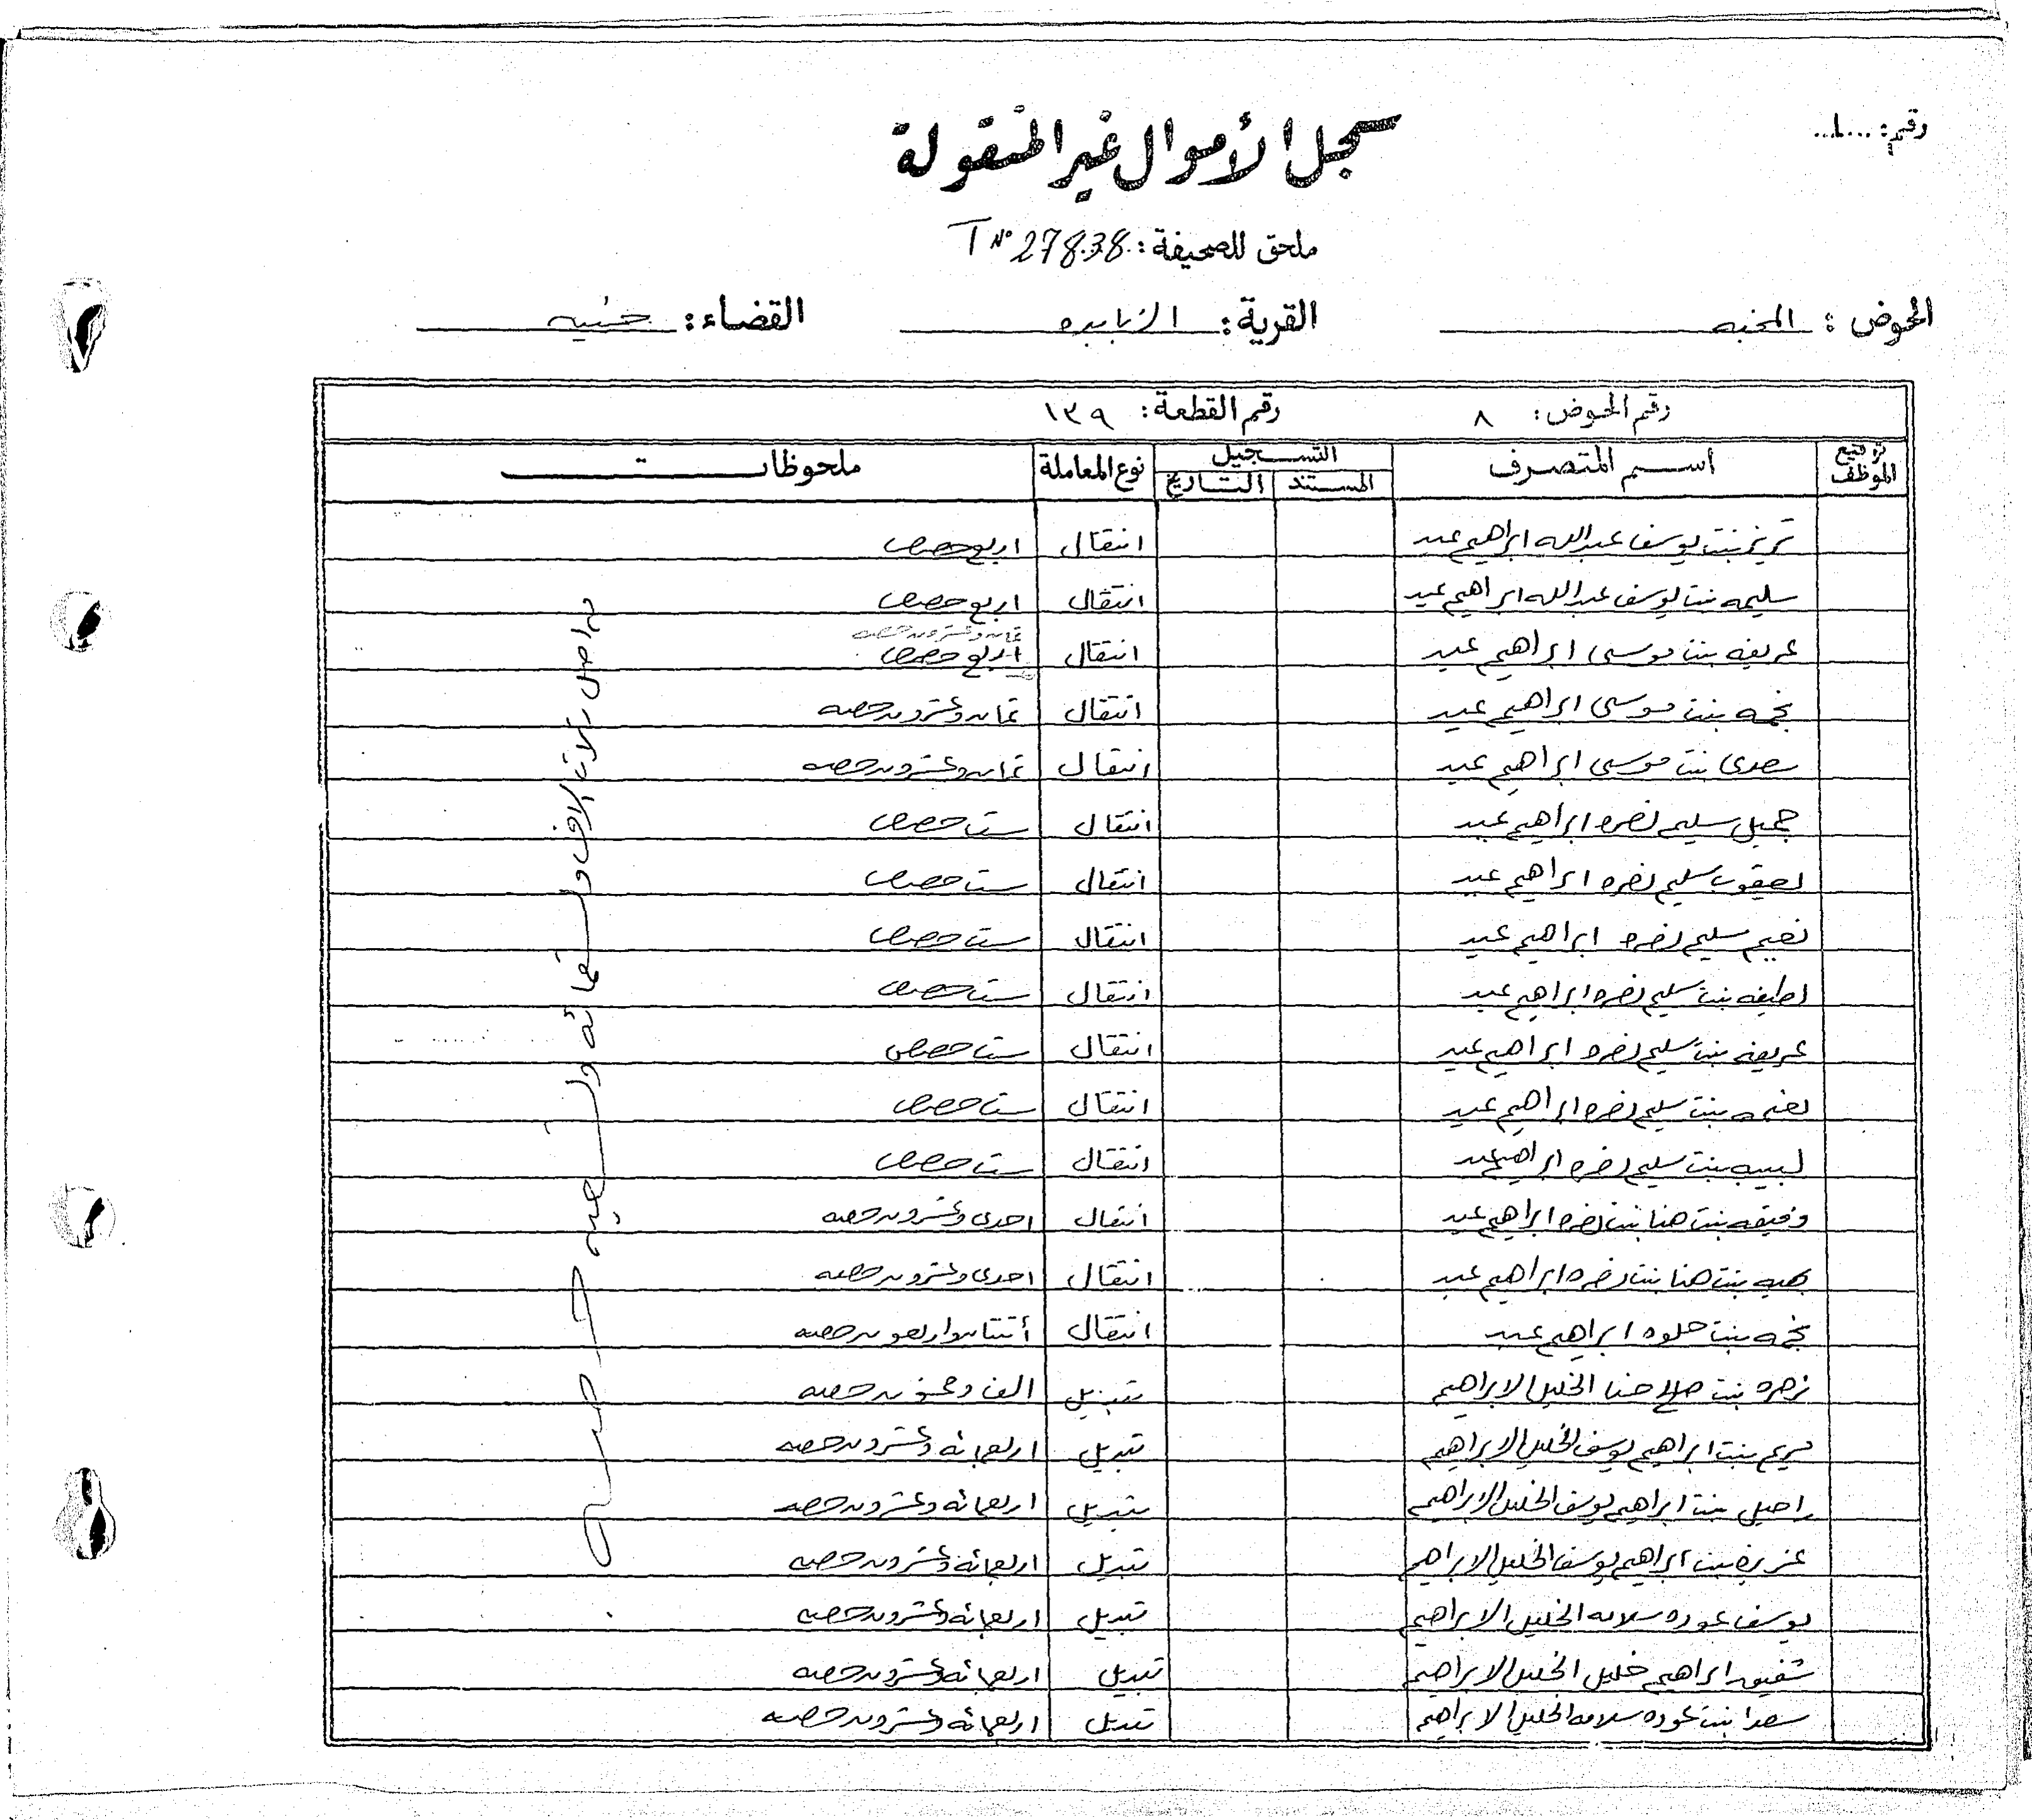 رقم: ...١...
سجل الأموال غير المنقولة
ملحق للصحيفة: T Nº 27838
الحوض: المحنبه القرية: الزبابده القضاء: جنين
رقم الحوض: ٨ رقم القطعة: ١٣٩
توقيع الموظف اسم المتصرف التسجيل نوع المعاملة ملحوظات
المستند التاريخ
تريز بنت يوسف عبدالله ابراهيم عيد انتقال اربع حصص
سليمه بنت يوسف عبدالله ابراهيم عيد انتقال اربع حصص
ثمان وعشرون حصه
عريفه بنت موسى ابراهيم عيد انتقال اربع حصص
نجمه بنت موسى ابراهيم عيد انتقال ثمان وعشرون حصه
سعدى بنت موسى ابراهيم عيد انتقال ثمان وعشرون حصه
جميل سليم نصره ابراهيم عيد انتقال ست حصص
يعقوب سليم نصره ابراهيم عيد انتقال ست حصص
نعيم سليم نصره ابراهيم عيد انتقال ست حصص
لطيفه بنت سليم نصره ابراهيم عيد انتقال ست حصص
عريفه بنت سليم نصره ابراهيم عيد انتقال ست حصص
نعيمه بنت سليم نصره ابراهيم عيد انتقال ست حصص
لبيبه بنت سليم نصره ابراهيم عيد انتقال ست حصص
وفيقه بنت حنا بنت نصره ابراهيم عيد انتقال احدى وعشرون حصه
بهيه بنت حنا بنت نصره ابراهيم عيد انتقال احدى وعشرون حصه
نجمه بنت حلوه ابراهيم عيد انتقال أثنتان واربعون حصه
زهره بنت صالح حنا الخليل الابراهيم تبديل الف وخمسون حصه
مريم بنت ابراهيم يوسف الخليل الابراهيم تبديل اربعمائه وعشرون حصه
راحيل بنت ابراهيم يوسف الخليل الابراهيم تبديل اربعمائه وعشرون حصه
عزيزه بنت ابراهيم يوسف الخليل الابراهيم تبديل اربعمائه وعشرون حصه
يوسف عوده سلامه الخليل الابراهيم تبديل اربعمائه وعشرون حصه
شفيق ابراهيم خليل الخليل الابراهيم تبديل اربعمائه وعشرون حصه
سعدا بنت عوده سلامه الخليل الابراهيم تبديل اربعمائه وعشرون حصه
من اصل ثلاث الاف وستمائه وسبعين حصه